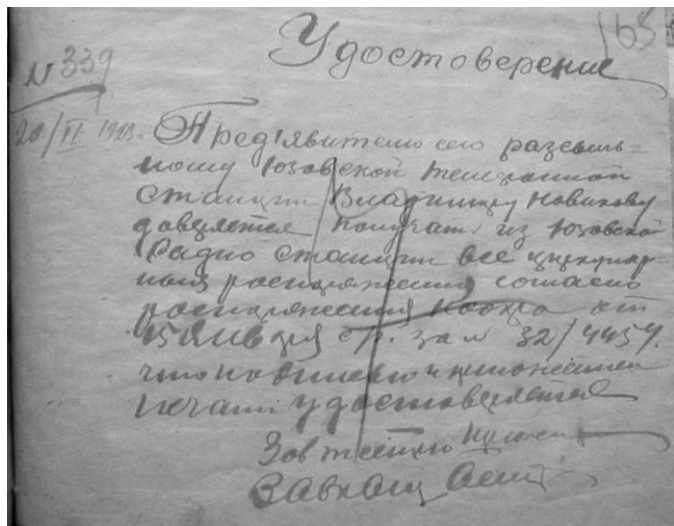 165
Удостоверение
N 339
20/II 1923 г.
Пред'явителю сего разсыль-
ному Юзовской телефонной
станции Владимиру Новикову
доверяется получать из Юзовской
Радио станции все циркуляр-
ныя распоряжения согласно
распоряжения от
15 Января с/г. за N 32/4457.
что подписью и приложением
печати удостоверяется
Зав